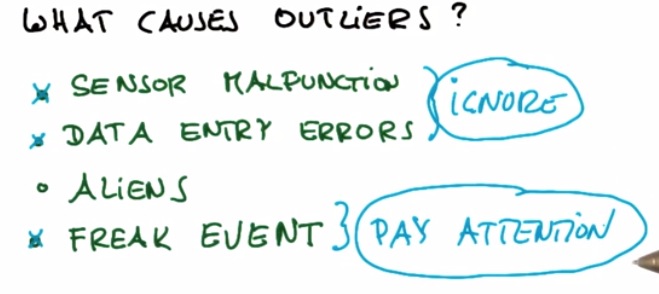 WHAT CAUSES OUTLIERS?
SENSOR MALFUNCTION
DATA ENTRY ERRORS
IGNORE
ALIENS
FREAK EVENT
PAY ATTENTION